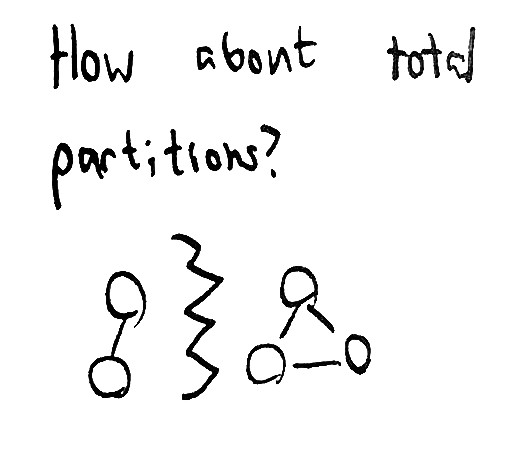 How about total
partitions?